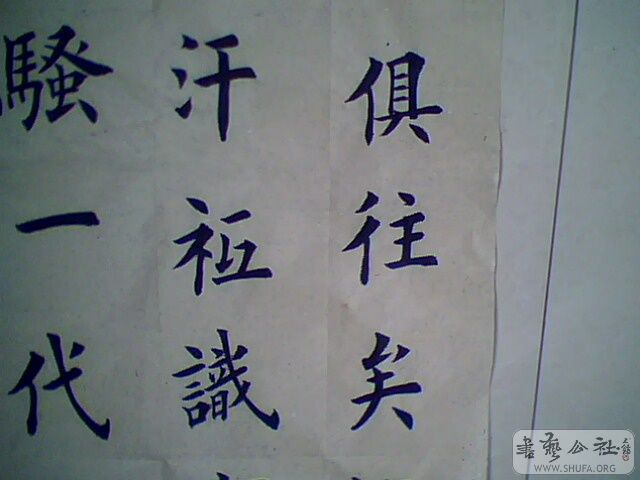 俱往矣
汗祗識
騷一代
書藝公社
WWW.SHUFA.ORG